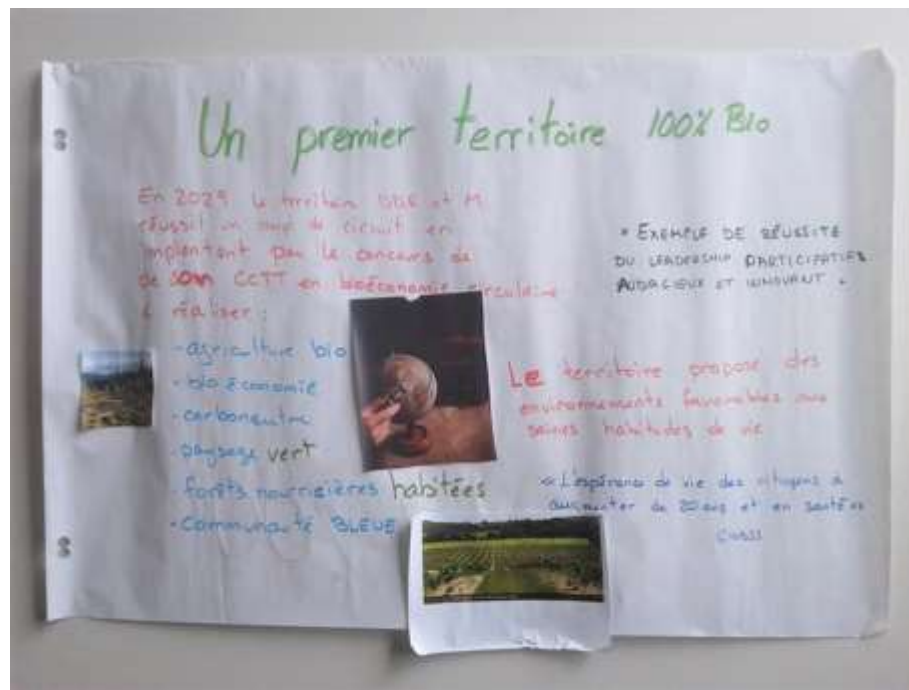 Un premier territoire 100% Bio
En 2029 le territoire et M
réussit un coup de circuit en
implentant par le concours de
de son CCTT en bioéconomie circulaire
à réaliser :
- agriculture bio
- bioéconomie
- carboneutre
- paysage vert
- forêts nourricières habitées
- communauté BLEUE
* EXEMPLE DE RÉUSSITE
DU LEADERSHIP PARTICIPATIF,
AUDACIEUX ET INNOVANT.
Le territoire propose des
environnements favorables aux
saines habitudes de vie
« L'espérance de vie des citoyens à
augmenter de 20 ans et en santé »